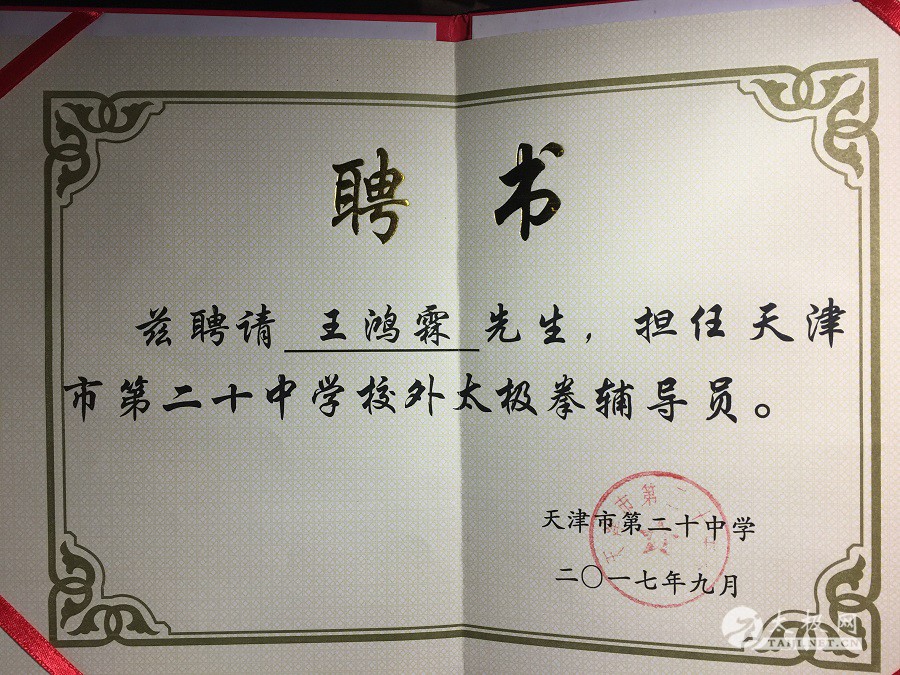 聘书
兹聘请 王鸿霖 先生，担任天津
市第二十中学校外太极拳辅导员。
天津市第二十中学
二〇一七年九月
太极网
TAIJI.NET.CN